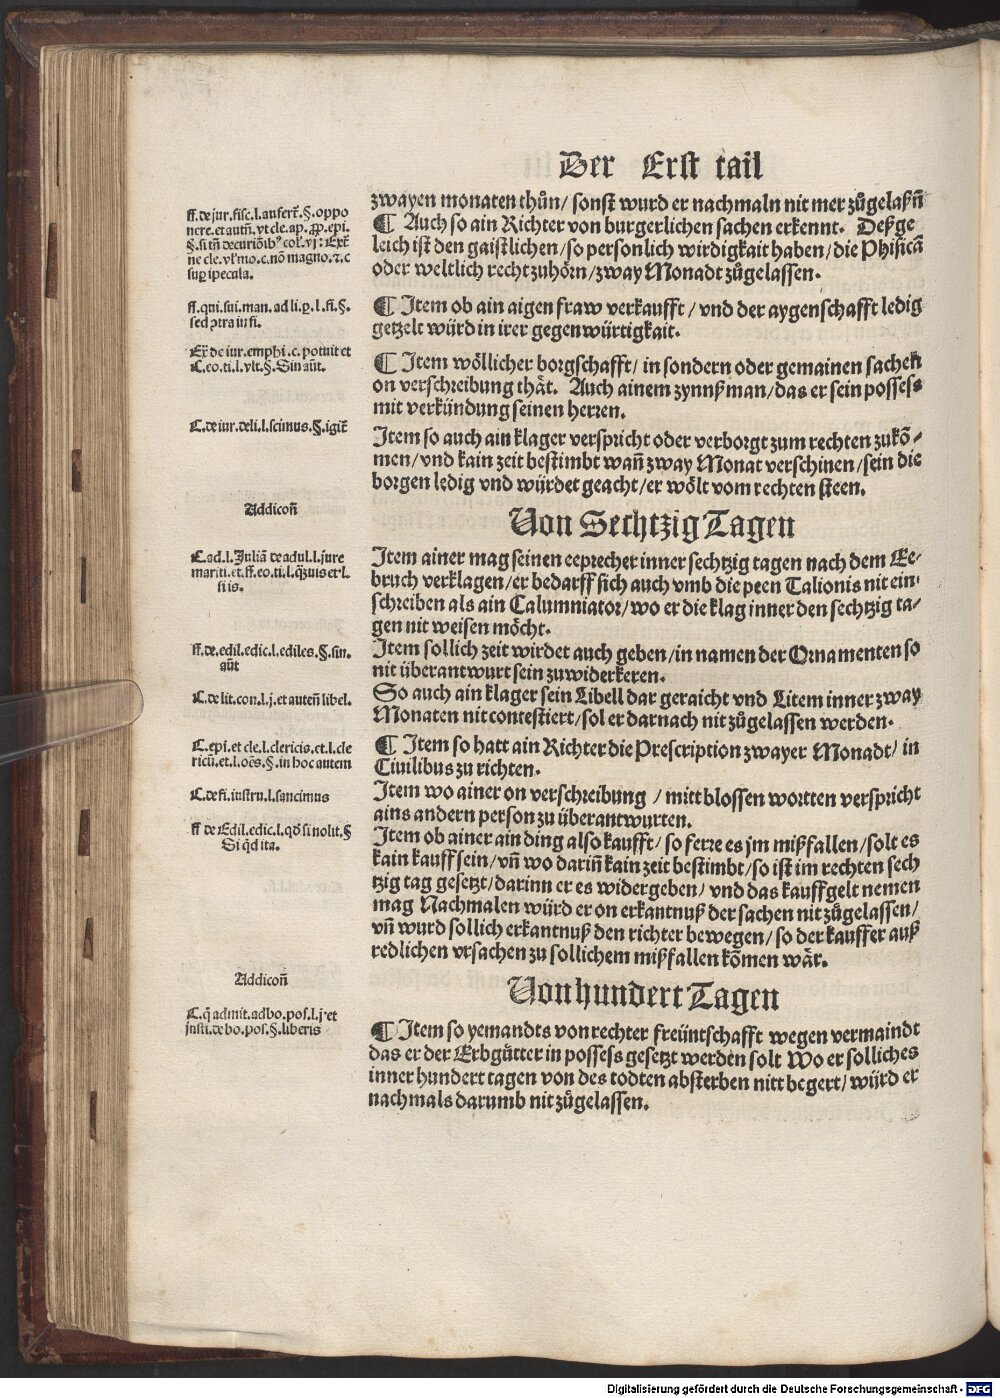 Der Erst tail
zwayen monaten thůn / sonst wurd er nachmaln nit mer zůgelaßn̄
¶ Auch so ain Richter von burgerlichen sachen erkennt. Deßge-
leich ist den gaistlichen / so personlich wirdigkait haben / die Phisicā
oder weltlich recht zuhörn / zway Monadt zůgelassen.
ff. de jur. fisc. l. aufert̄. §. oppo
nere. et autn̄. vt cle. ap. ꝓp. epi.
ne cle. vl' mo. c. nō magno. ⁊. c
sup̱ specula.
¶ Item ob ain aigen fraw verkaufft / vnd der aygenschafft ledig
getzelt würd in irer gegenwürtigkait.
ff. qui. sui. man. ad li. ꝑ. l. fi. §.
¶ Item wöllicher borgschafft / in sondern oder gemainen sachen
on verschreibung thät. Auch ainem zynnßman / das er sein possess
mit verkündung seinen herren.
Ex̄ de iur. emphi. c. potuit et
C. eo. ti. l. vlt. §. Sin aūt.
Item so auch ain klager verspricht oder verborgt zum rechten zukō-
men / vnd kain zeit bestimbt wan̄ zway Monat verschinen / sein die
borgen ledig vnd würdet geacht / er wölt vom rechten steen.
C. de iur. deli. l. scimus. §. igit̄
Von Sechtzig Tagen
Addicon̄
Item ainer mag seinen eeprecher inner sechtzig tagen nach dem Ee-
bruch verklagen / er bedarff sich auch vmb die peen Talionis nit ein-
schreiben als ain Calumniator / wo er die klag inner den sechtzig ta-
gen nit weisen möcht.
C. ad. l. Juliā de adul. l. jure
mariti. et. ff. eo. ti. l. q̄uis et l.
si is.
Item sollich zeit wirdet auch geben / in namen der Ornamenten so
nit überantwurt sein zuwiderkeren.
ff. de. edil. edic. l. ediles. §. sin.
aūt
So auch ain klager sein Libell dar geraicht vnd Litem inner zway
Monaten nit contestiert / sol er darnach nit zůgelassen werden.
C. de lit. con. l. j. et auten̄ libel.
¶ Item so hatt ain Richter die Prescription zwayer Monadt / in
Ciuilibus zu richten.
C. epi. et cle. l. clericis. et. l. cle
ricū. et. l. oēs. §. in hoc autem
Item wo ainer on verschreibung / mitt blossen wortten verspricht
ains andern person zu überantwurten.
C. de fi. instru. l. sancimus
Item ob ainer ain ding also kaufft / so ferre es jm mißfallen / solt es
kain kauff sein / vn̄ wo darin̄ kain zeit bestimbt / so ist im rechten sech
tzig tag gesetzt / darinn er es widergeben / vnd das kauffgelt nemen
mag Nachmalen würd er on erkantnuß der sachen nit zůgelassen /
vn̄ wurd sollich erkantnuß den richter bewegen / so der kauffer auß
redlichen vrsachen zu sollichem mißfallen kōmen wär.
ff de Edil. edic. l. qd̄ si nolit. §
Si q̇d ita.
Von hundert Tagen
Addicon̄
¶ Item so yemandts von rechter freüntschafft wegen vermaindt
das er der Erbgütter in possess gesetzt werden solt Wo er solliches
inner hundert tagen von des todten absterben nitt begert / würd er
nachmals darumb nit zůgelassen.
C. q̇ admit. ad bo. pos. l. j. et
insti. de bo. pos. §. liberis
Digitalisierung gefördert durch die Deutsche Forschungsgemeinschaft - DFG